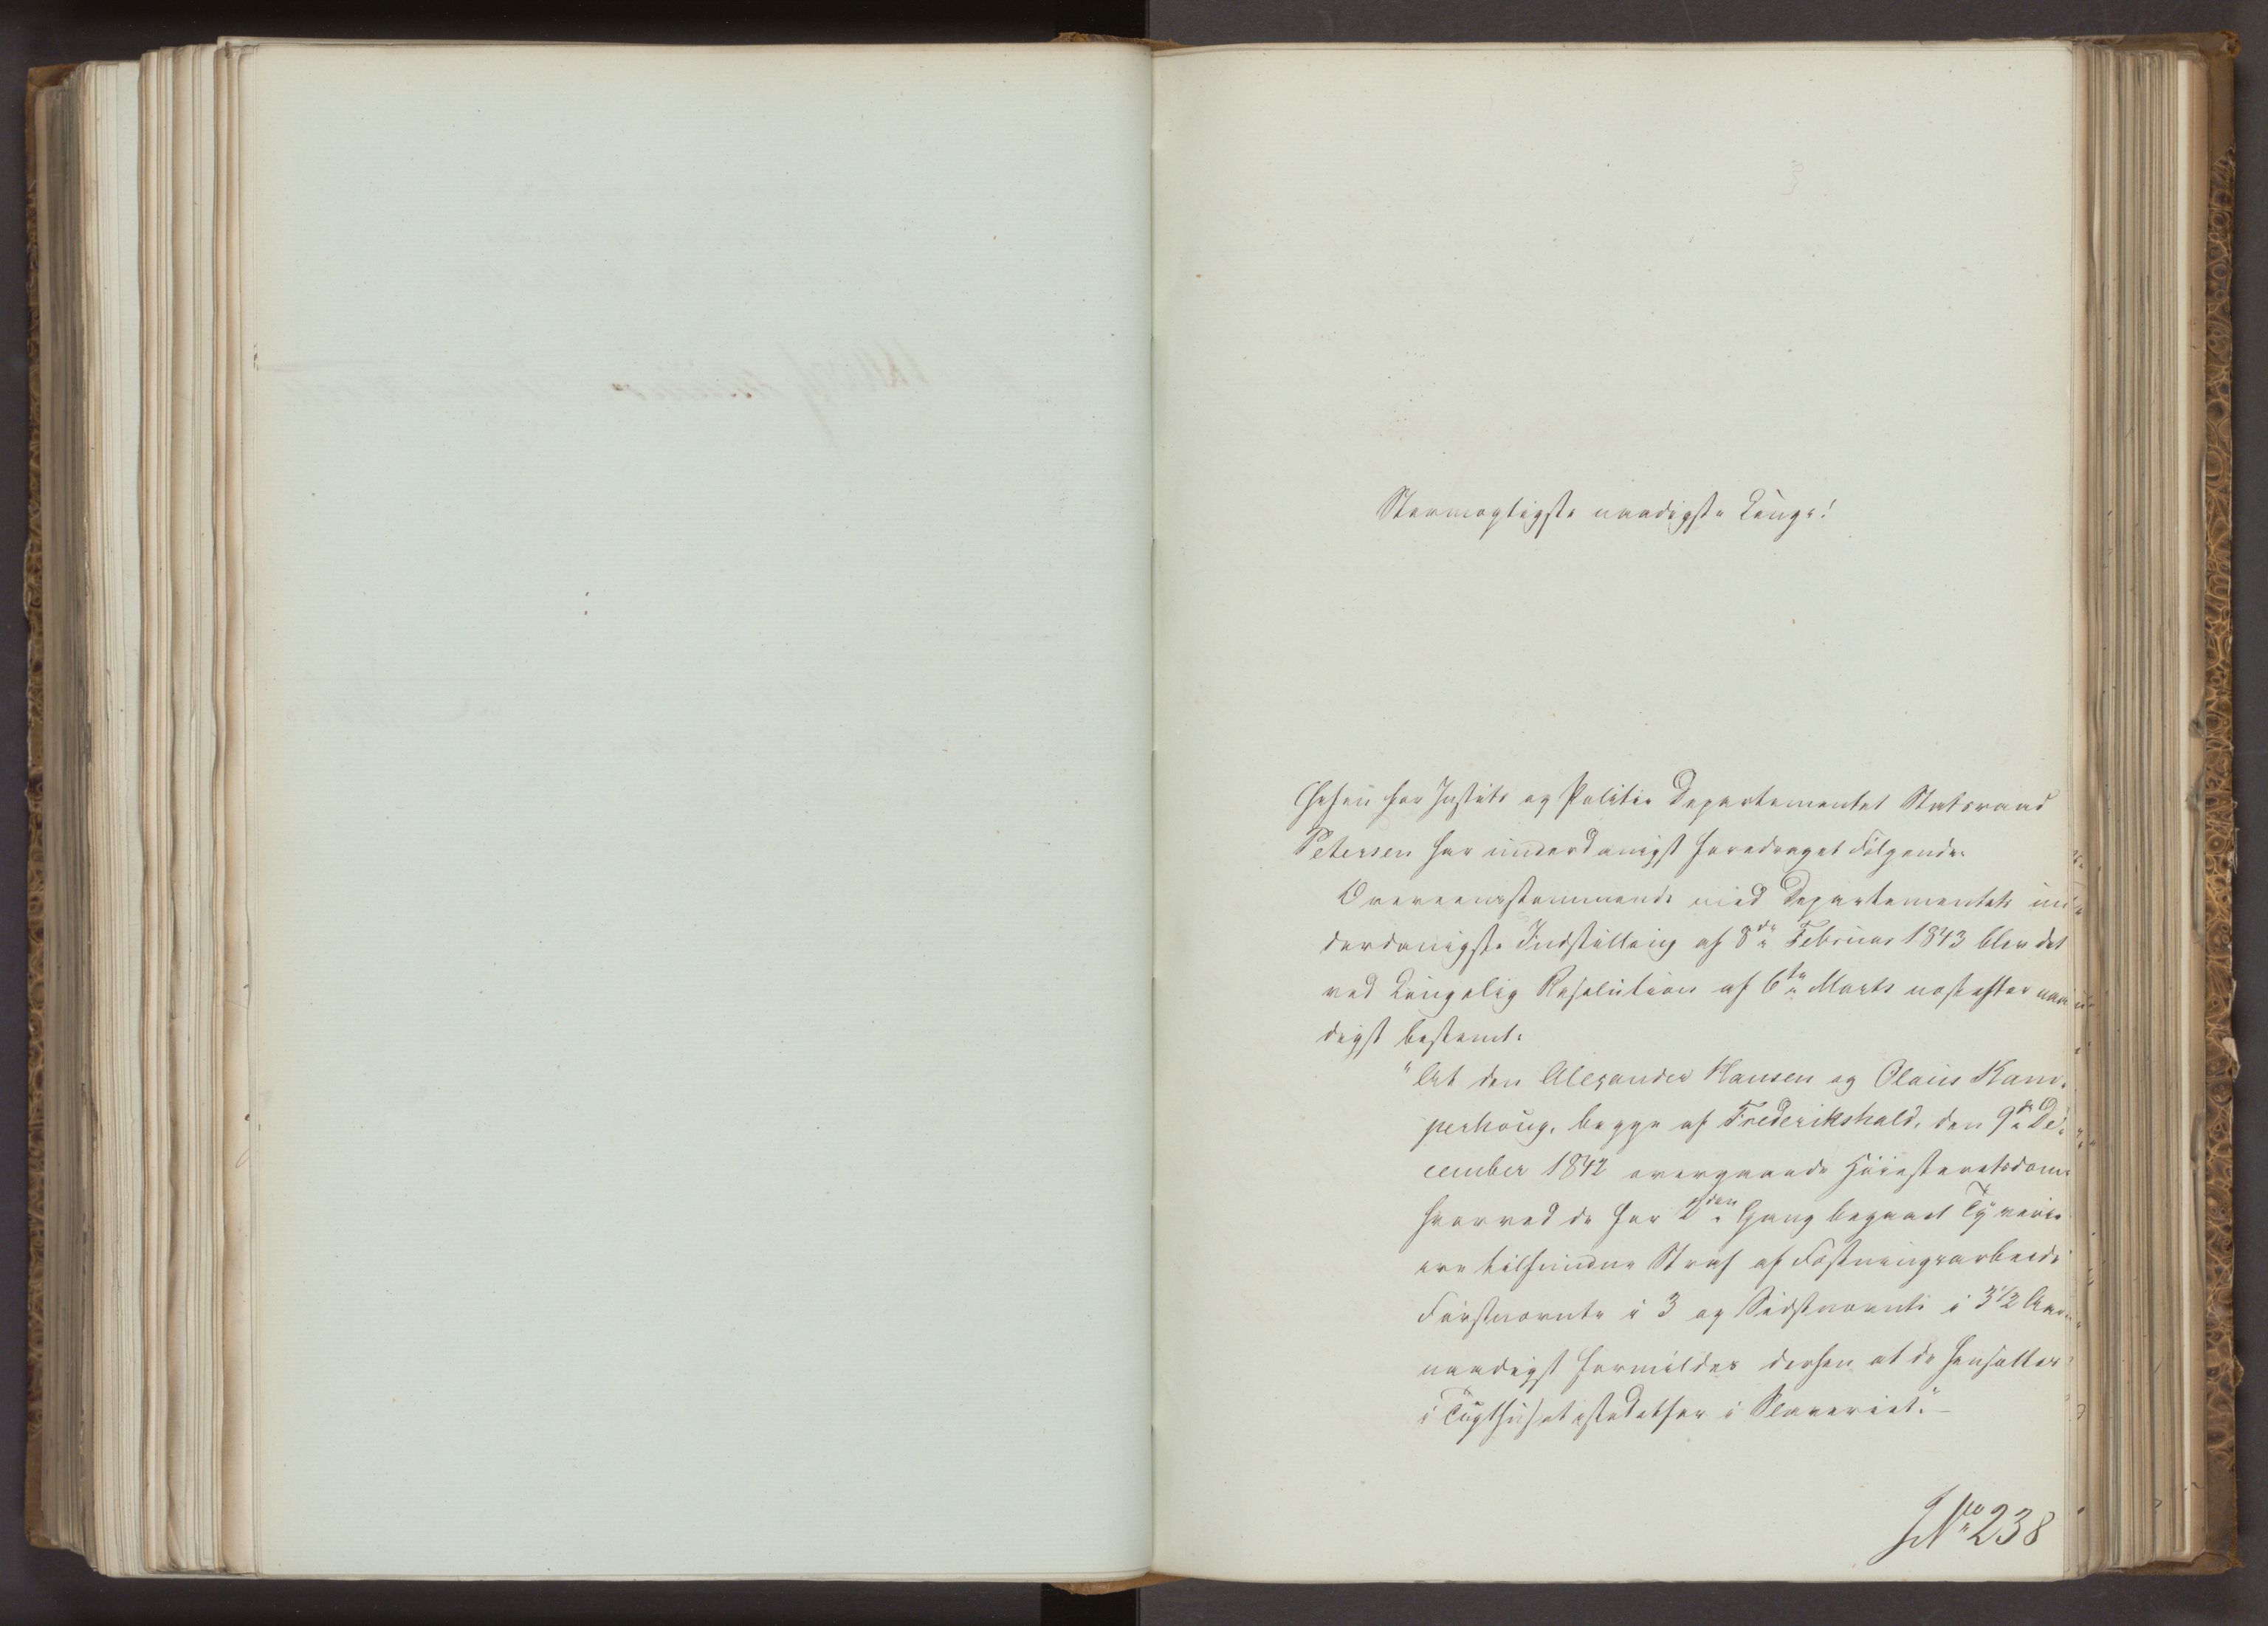 Stormægtigste naadigste Konge!
Chefen for Justits og Politie Departementet Statsraad
Petersen har underdanigst foredraget Følgende:
Overeensstemmende med Departementets un-
derdanigste Indstilling af 8de Februar 1843 blev det
ved Kongelig Resolution af 6te Marts næstefter naa-
digst bestemt:
"At den Alexander Hansen og Olaus Kam-
perhoug, begge af Frederikshald, den 9de De-
cember 1842 overgaaede Høiesteretsdom,
hvorved de for 2den Gang begaaet Tyverie
ere tilfundne Straf af Fæstningsarbeide
Førstnævnte i 3 og Sidstnævnte i 3 1/2 Aar,
naadigst formildes derhen at de hensættes
i Tugthuset istedetfor i Slaveriet."–
JNo 238